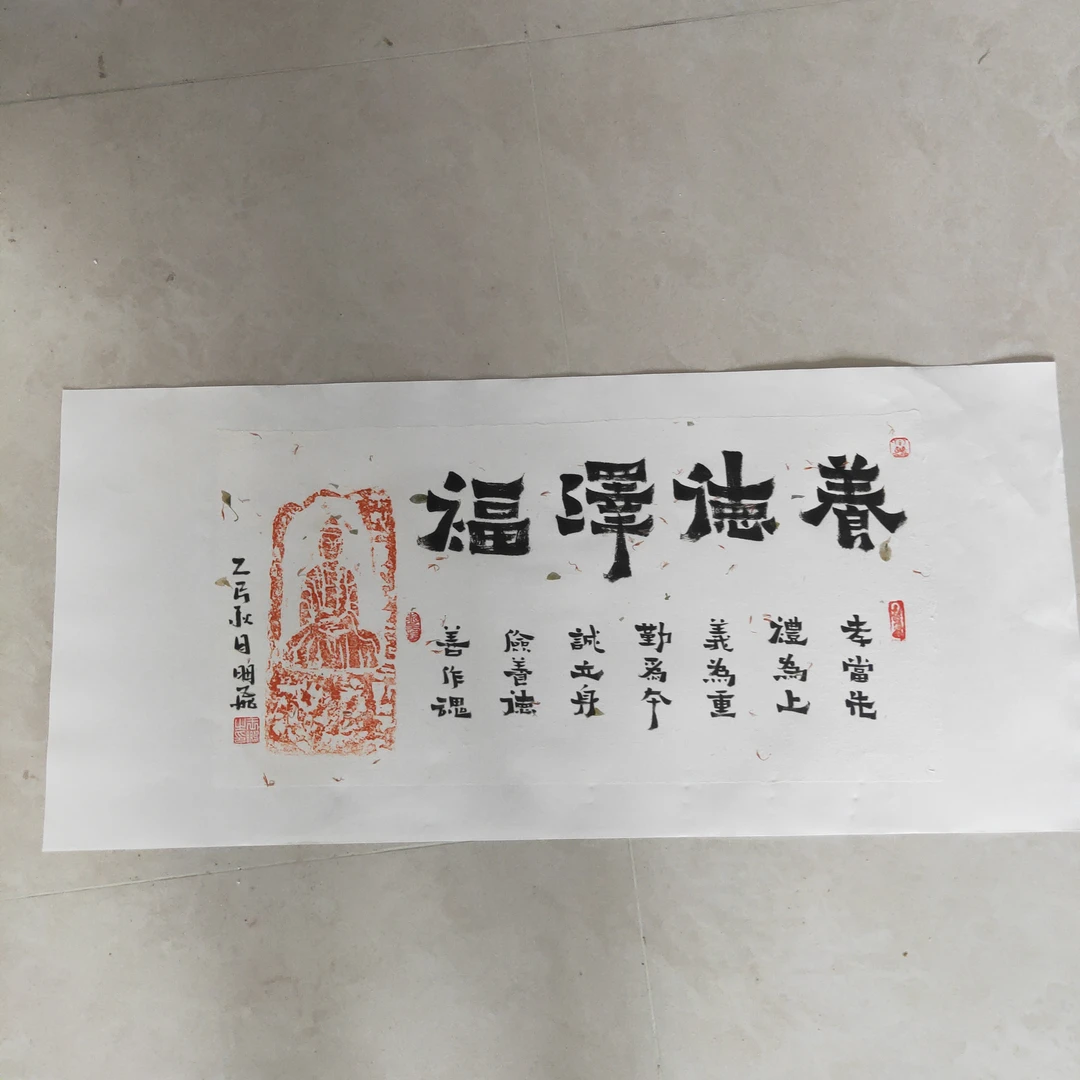 養德澤福
孝當先
禮為上
義為重
勤為本
誠立身
儉養德
善作魂
乙巳秋日明飛